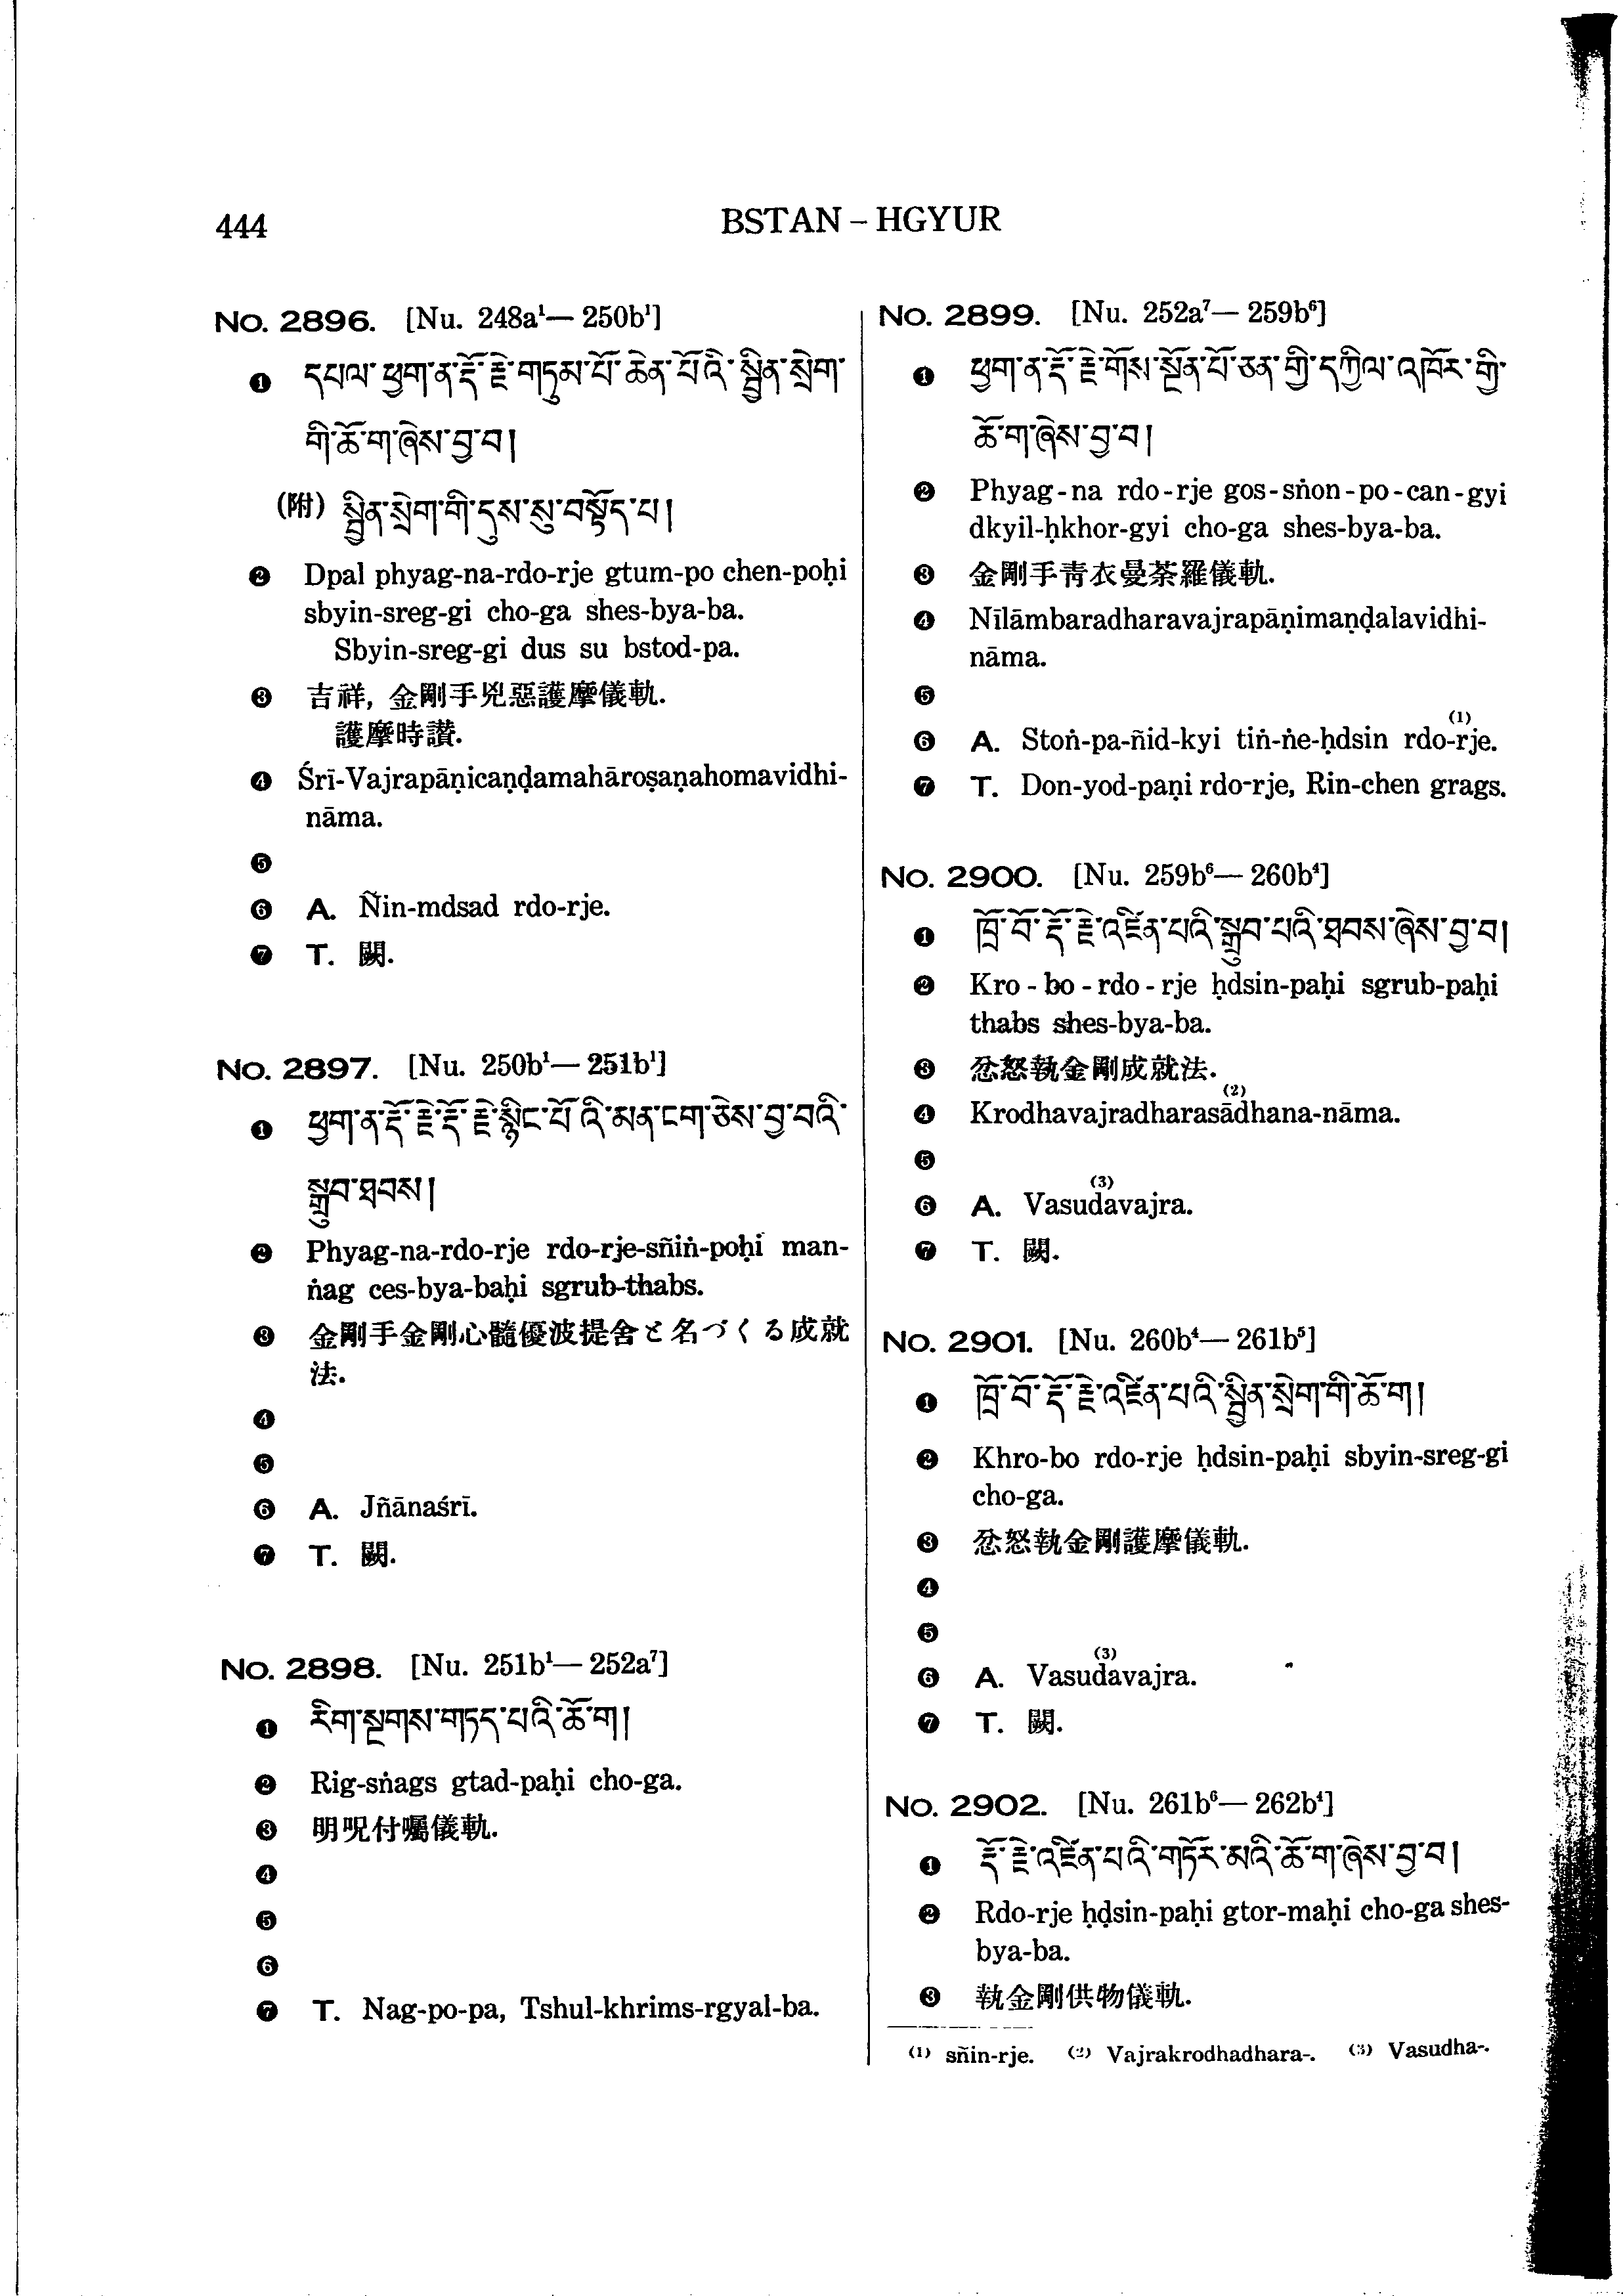 444
BSTAN – HGYUR
No. 2896. [Nu. 248a¹— 250b¹]
❶ དཔལ་ཕྱག་ན་རྡོ་རྗེ་གཏུམ་པོ་ཆེན་པོའི་སྦྱིན་སྲེག་
གི་ཆོ་ག་ཞེས་བྱ་བ།
(附) སྦྱིན་སྲེག་གི་དུས་སུ་བསྟོད་པ།
❷ Dpal phyag-na-rdo-rje gtum-po chen-poḥi
sbyin-sreg-gi cho-ga shes-bya-ba.
Sbyin-sreg-gi dus su bstod-pa.
❸ 吉祥, 金剛手兇惡護摩儀軌.
護摩時讚.
❹ Śrī-Vajrapāṇicaṇḍamahāroṣaṇahomavidhi-
nāma.
❺
❻ A. Ñin-mdsad rdo-rje.
❼ T. 闕.
No. 2897. [Nu. 250b¹— 251b¹]
❶ ཕྱག་ན་རྡོ་རྗེ་རྡོ་རྗེ་སྙིང་པོ་འི་མན་ངག་ཅེས་བྱ་བའི་
སྒྲུབ་ཐབས།
❷ Phyag-na-rdo-rje rdo-rje-sñiṅ-poḥi man-
ṅag ces-bya-baḥi sgrub-thabs.
❸ 金剛手金剛心髓優波提舍と名づくる成就
法.
❹
❺
❻ A. Jñānaśrī.
❼ T. 闕.
No. 2898. [Nu. 251b¹— 252a⁷]
❶ རིག་སྔགས་གཏད་པའི་ཆོ་ག།
❷ Rig-sṅags gtad-paḥi cho-ga.
❸ 明呪付囑儀軌.
❹
❺
❻
❼ T. Nag-po-pa, Tshul-khrims-rgyal-ba.
No. 2899. [Nu. 252a⁷— 259b⁶]
❶ ཕྱག་ན་རྡོ་རྗེ་གོས་སྔོན་པོ་ཅན་གྱི་དཀྱིལ་འཁོར་གྱི་
ཆོ་ག་ཞེས་བྱ་བ།
❷ Phyag-na rdo-rje gos-sṅon-po-can-gyi
dkyil-ḥkhor-gyi cho-ga shes-bya-ba.
❸ 金剛手靑衣曼荼羅儀軌.
❹ Nīlāmbaradharavajrapāṇimaṇḍalavidhi-
nāma.
❺
❻ A. Stoṅ-pa-ñid-kyi tiṅ-ṅe-ḥdsin rdo-rje.⁽¹⁾
❼ T. Don-yod-paṇi rdo-rje, Rin-chen grags.
No. 2900. [Nu. 259b⁶— 260b⁴]
❶ ཁྲོ་བོ་རྡོ་རྗེ་འཛིན་པའི་སྒྲུབ་པའི་ཐབས་ཞེས་བྱ་བ།
❷ Kro-bo-rdo-rje ḥdsin-paḥi sgrub-paḥi
thabs shes-bya-ba.
❸ 忿怒執金剛成就法.
❹ Krodhavajradharasādhana-nāma.⁽²⁾
❺
❻ A. Vasudavajra.⁽³⁾
❼ T. 闕.
No. 2901. [Nu. 260b⁴— 261b⁵]
❶ ཁྲོ་བོ་རྡོ་རྗེ་འཛིན་པའི་སྦྱིན་སྲེག་གི་ཆོ་ག།
❷ Khro-bo rdo-rje ḥdsin-paḥi sbyin-sreg-gi
cho-ga.
❸ 忿怒執金剛護摩儀軌.
❹
❺
❻ A. Vasudavajra.⁽³⁾
❼ T. 闕.
No. 2902. [Nu. 261b⁶— 262b⁴]
❶ རྡོ་རྗེ་འཛིན་པའི་གཏོར་མའི་ཆོ་ག་ཞེས་བྱ་བ།
❷ Rdo-rje ḥdsin-paḥi gtor-maḥi cho-ga shes-
bya-ba.
❸ 執金剛供物儀軌.
(1) sñin-rje. (2) Vajrakrodhadhara-. (3) Vasudha-.